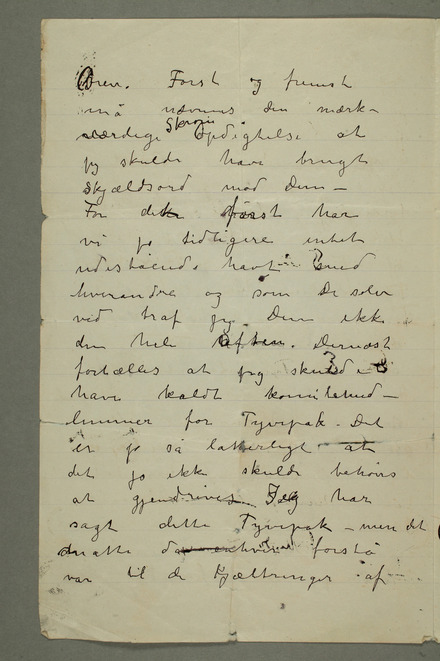 Først og fremst
må nævnes den mærk-
værdige Skrøne Opdigtelse at
jeg skulde have brugt
Skjældsord mod Dem –
For det først har
vi jo tidligere intet
udestående havt med
hverandre og som De selv
ved traf jeg Dem ikke
den hele Aften. Dernæst
fortælles at jeg skulde
have kaldt komitemed-
lemmer for Tyvepak. Det
er jo så latterligt at
det jo ikke skulde behøves
at gjendrives Jeg har
sagt dette Tyvepak – men det
måtte forstå
var til de Kjæltringer af